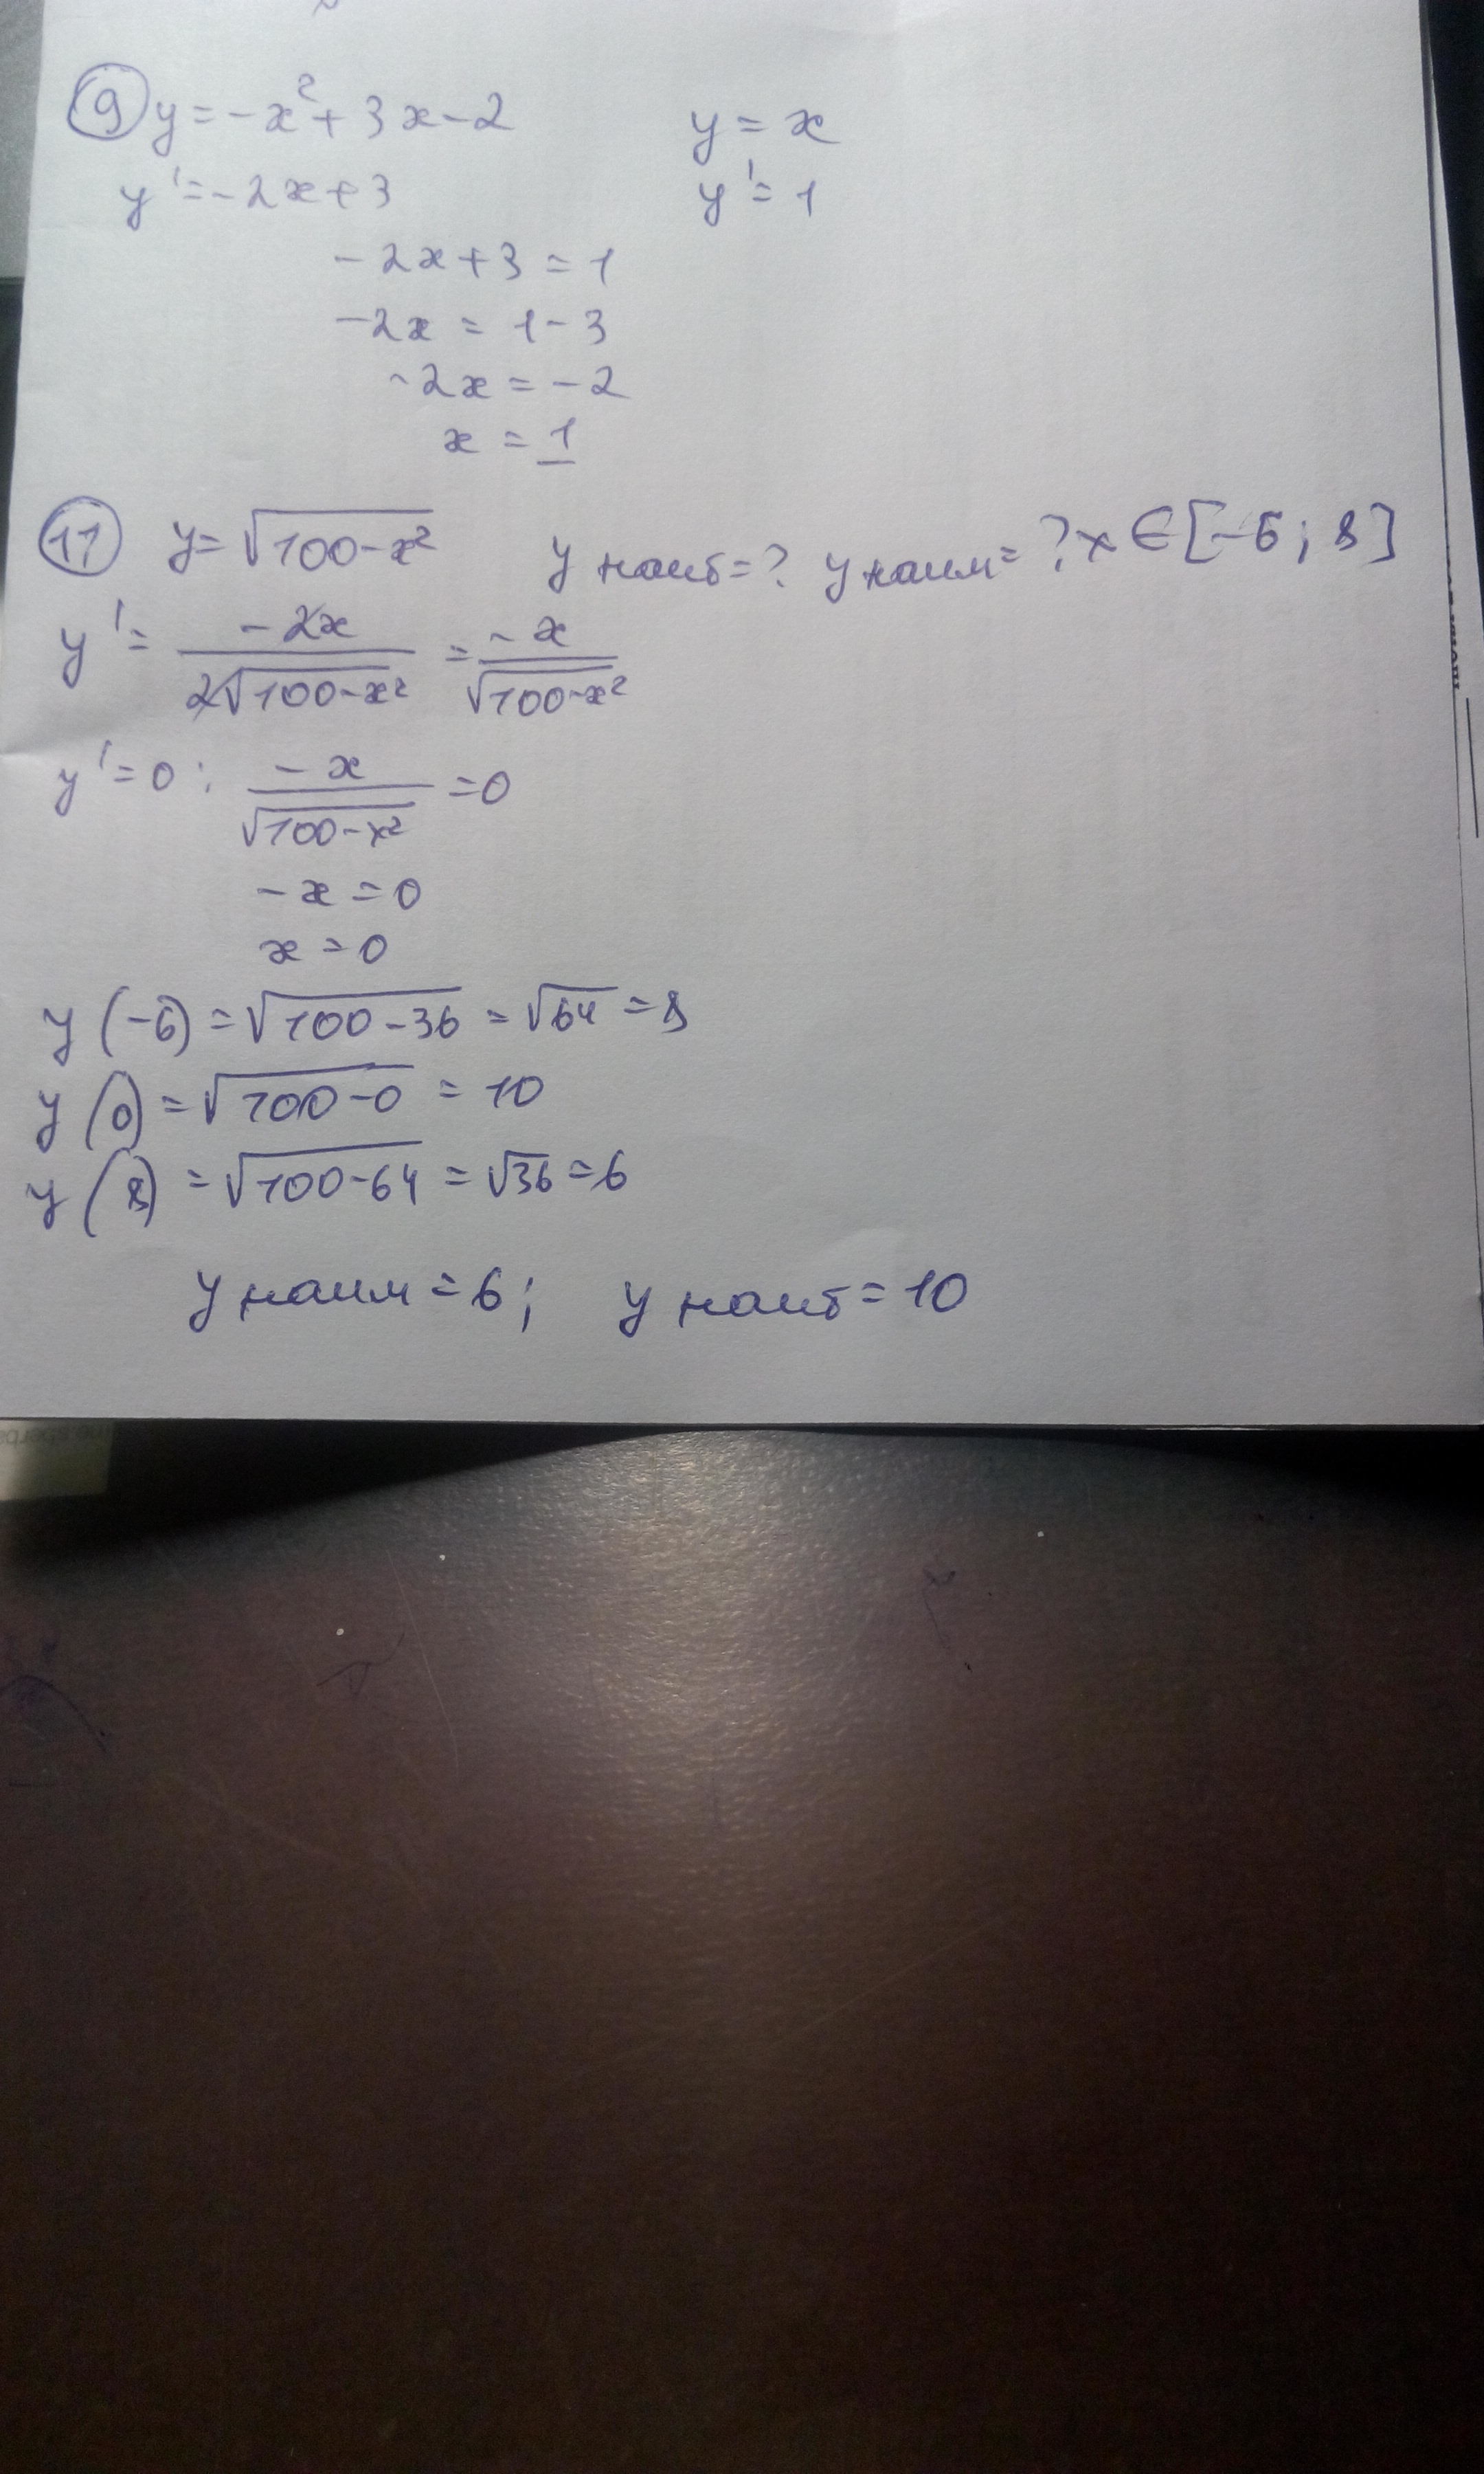 ⑨ y = -x² + 3x - 2 y = x
y' = -2x + 3 y' = 1
-2x + 3 = 1
-2x = 1 - 3
-2x = -2
x = 1
⑪ y = √(100-x²) y наиб = ? y наим = ? x ∈ [-6; 8]
y' = -2x / 2√(100-x²) = -x / √(100-x²)
y' = 0 : -x / √(100-x²) = 0
-x = 0
x = 0
y(-6) = √(100-36) = √64 = 8
y(0) = √(100-0) = 10
y(8) = √(100-64) = √36 = 6
y наим = 6; y наиб = 10